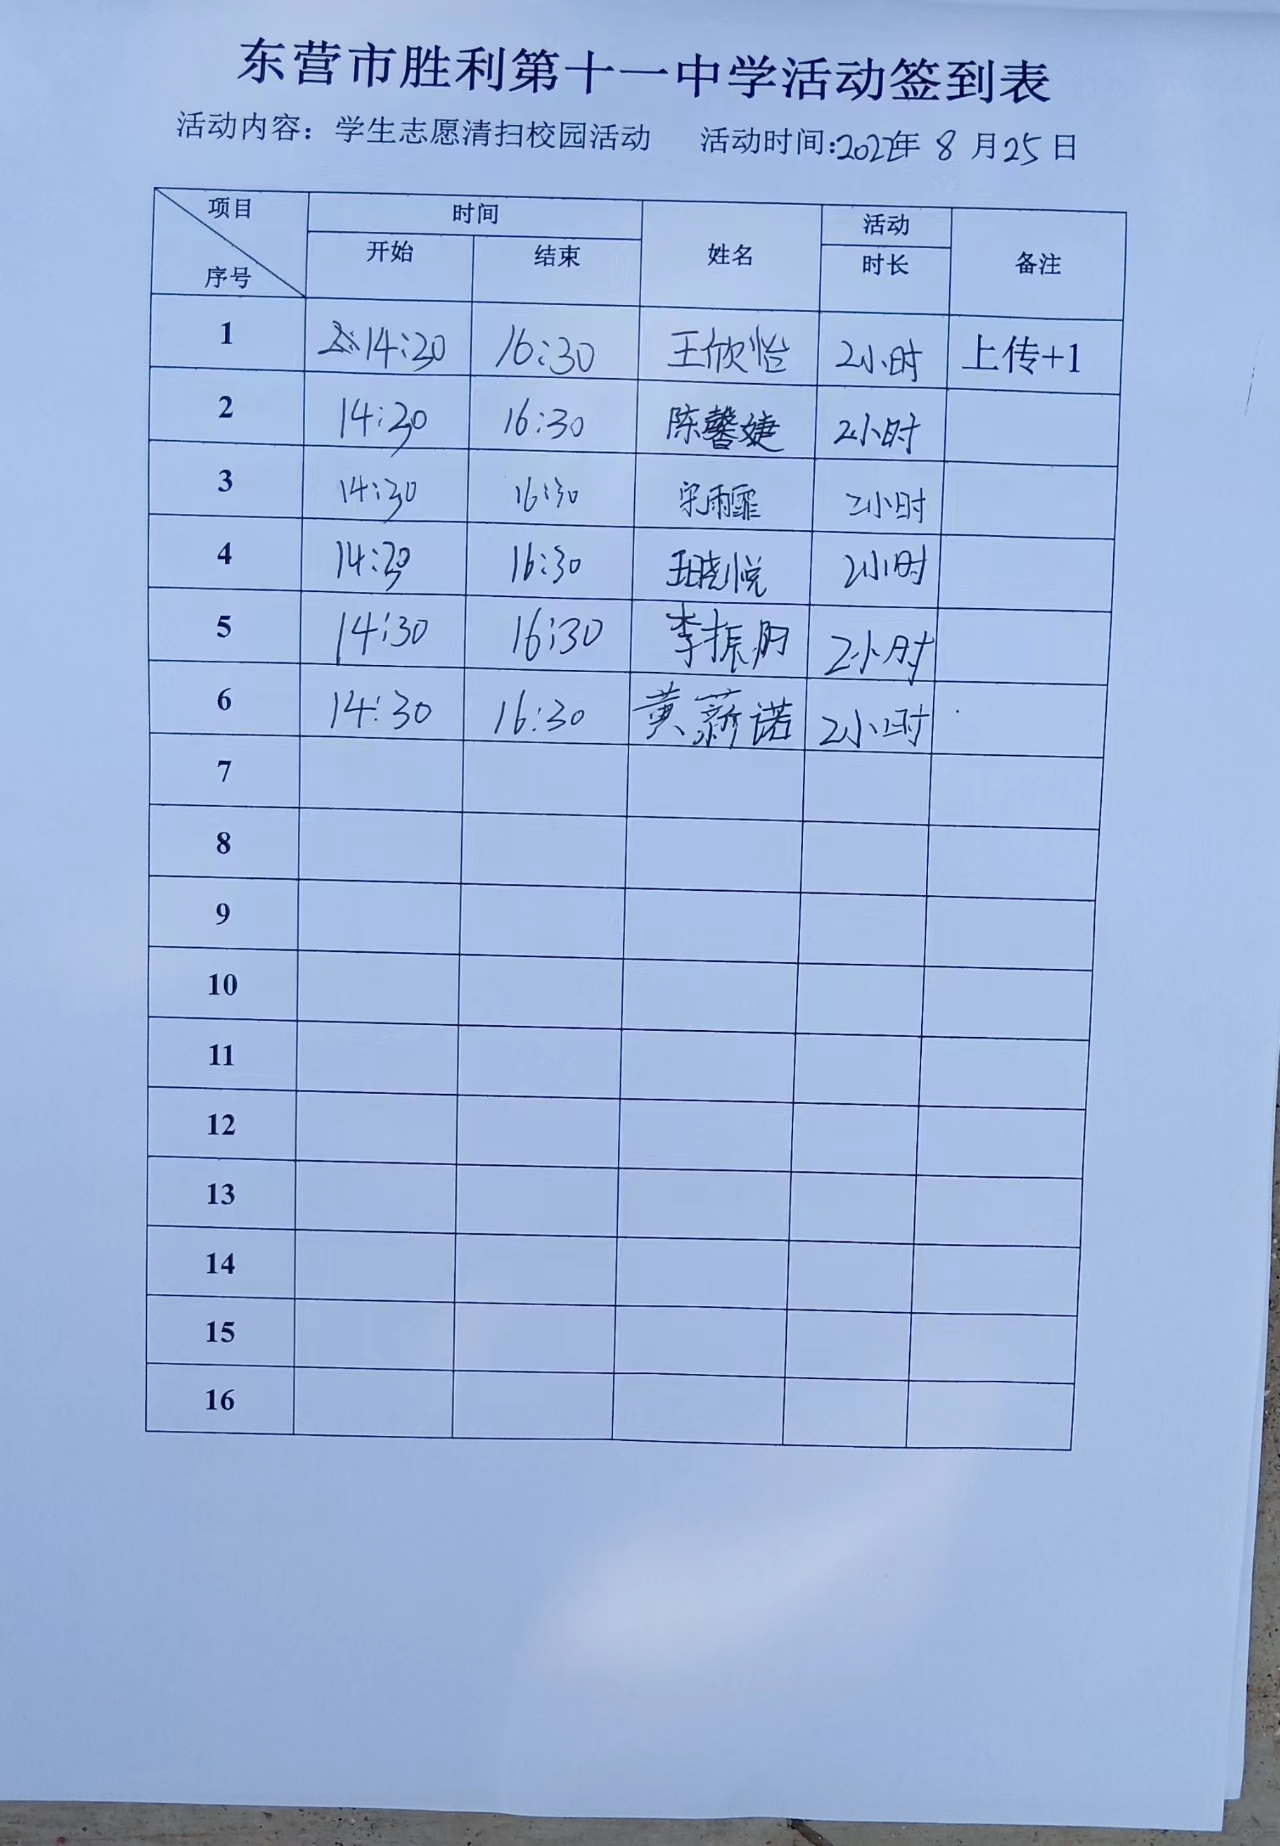 东营市胜利第十一中学活动签到表
活动内容：学生志愿清扫校园活动 活动时间:2022年 8 月25日
项目 时间 姓名 活动 备注
序号 开始 结束 时长
1 14:30 16:30 王欣怡 2小时 上传+1
2 14:30 16:30 陈馨婕 2小时
3 14:30 16:30 宋雨霏 2小时
4 14:30 16:30 晓悦 2小时
5 14:30 16:30 李振 2小时
6 14:30 16:30 黄薪诺 2小时
7
8
9
10
11
12
13
14
15
16